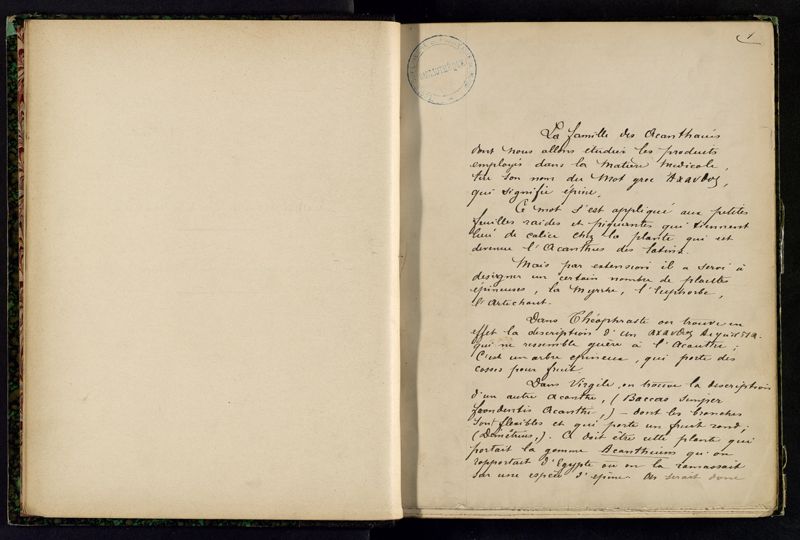 1
BIBLIOTHÈQUE
La famille des Acanthacées
dont nous allons étudier les produits
employés dans la Matière Médicale,
tire son nom du Mot grec Ἀκανθος,
qui signifie épine.
Ce mot s'est appliqué aux petites
feuilles raides et piquantes qui tiennent
lieu de calice chez la plante qui est
devenue l'Acanthus des latins.
Mais par extension il a servi à
désigner un certain nombre de plantes
épineuses, la Myrrhe, l'Euphorbe,
l'Artichaut.
Dans Théophraste on trouve en
effet la description d'un ακανθος
qui ne ressemble guère à l'Acanthe;
C'est un arbre épineux, qui porte des
cosses pour fruit.
Dans Virgile, on trouve la description
d'un autre Acanthe, (Baccas semper
frondentis Acanthi,) - dont les branches
sont flexibles et qui porte un fruit rond;
(Démétrius,). Ce doit être cette plante qui
portait la gomme Acanthinum qu'on
rapportait d'Egypte ou on la ramassait
sur une espèce d'épine. On serait donc